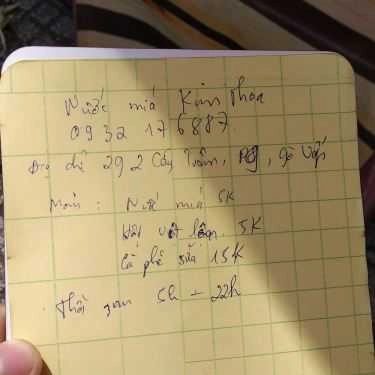 Nước mía Kim Thoa
0932 176887
Địa chỉ 292 Cây Trâm, P9, Gò Vấp
Món : Nước mía 5K
Hột vịt lộn 5K
Cà phê sữa 15K
Thời gian 5h - 22h